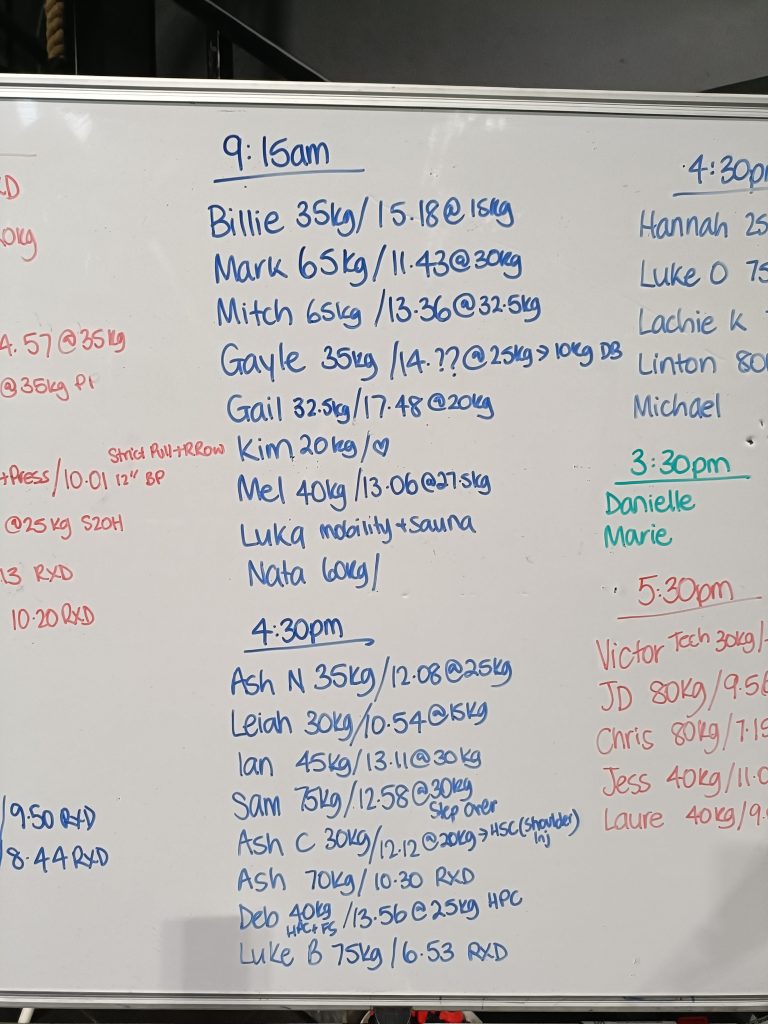 RXD
4.57@35kg
@35kg P1
Strict Pull+RRow
+Press/10.01 12" BP
@25kg S2OH
13 RXD
10.20 RXD
9.50 RXD
8.44 RXD
9:15am
Billie 35kg/15.18@15kg
Mark 65kg/11.43@30kg
Mitch 65kg/13.36@32.5kg
Gayle 35kg/14.??@25kg→10kg DB
Gail 32.5kg/17.48@20kg
Kim 20kg/♡
Mel 40kg/13.06@27.5kg
Luka mobility+sauna
Nata 60kg/
4:30pm
Ash N 35kg/12.08@25kg
Leiah 30kg/10.54@15kg
Ian 45kg/13.11@30kg
Sam 75kg/12.58@30kg
Step over
Ash C 30kg/12.12@20kg→HSC(shoulder)
Inj
Ash 70kg/10.30 RXD
Deb 40kg/13.56@25kg HPC
HPC+FS
Luke B 75kg/6.53 RXD
4:30p
Hannah 25
Luke O 75
Lachie K
Linton 80
Michael
3:30pm
Danielle
Marie
5:30pm
Victor Tech 30kg/
JD 80kg/9.5
Chris 80kg/7.1
Jess 40kg/11.0
Laure 40kg/9.